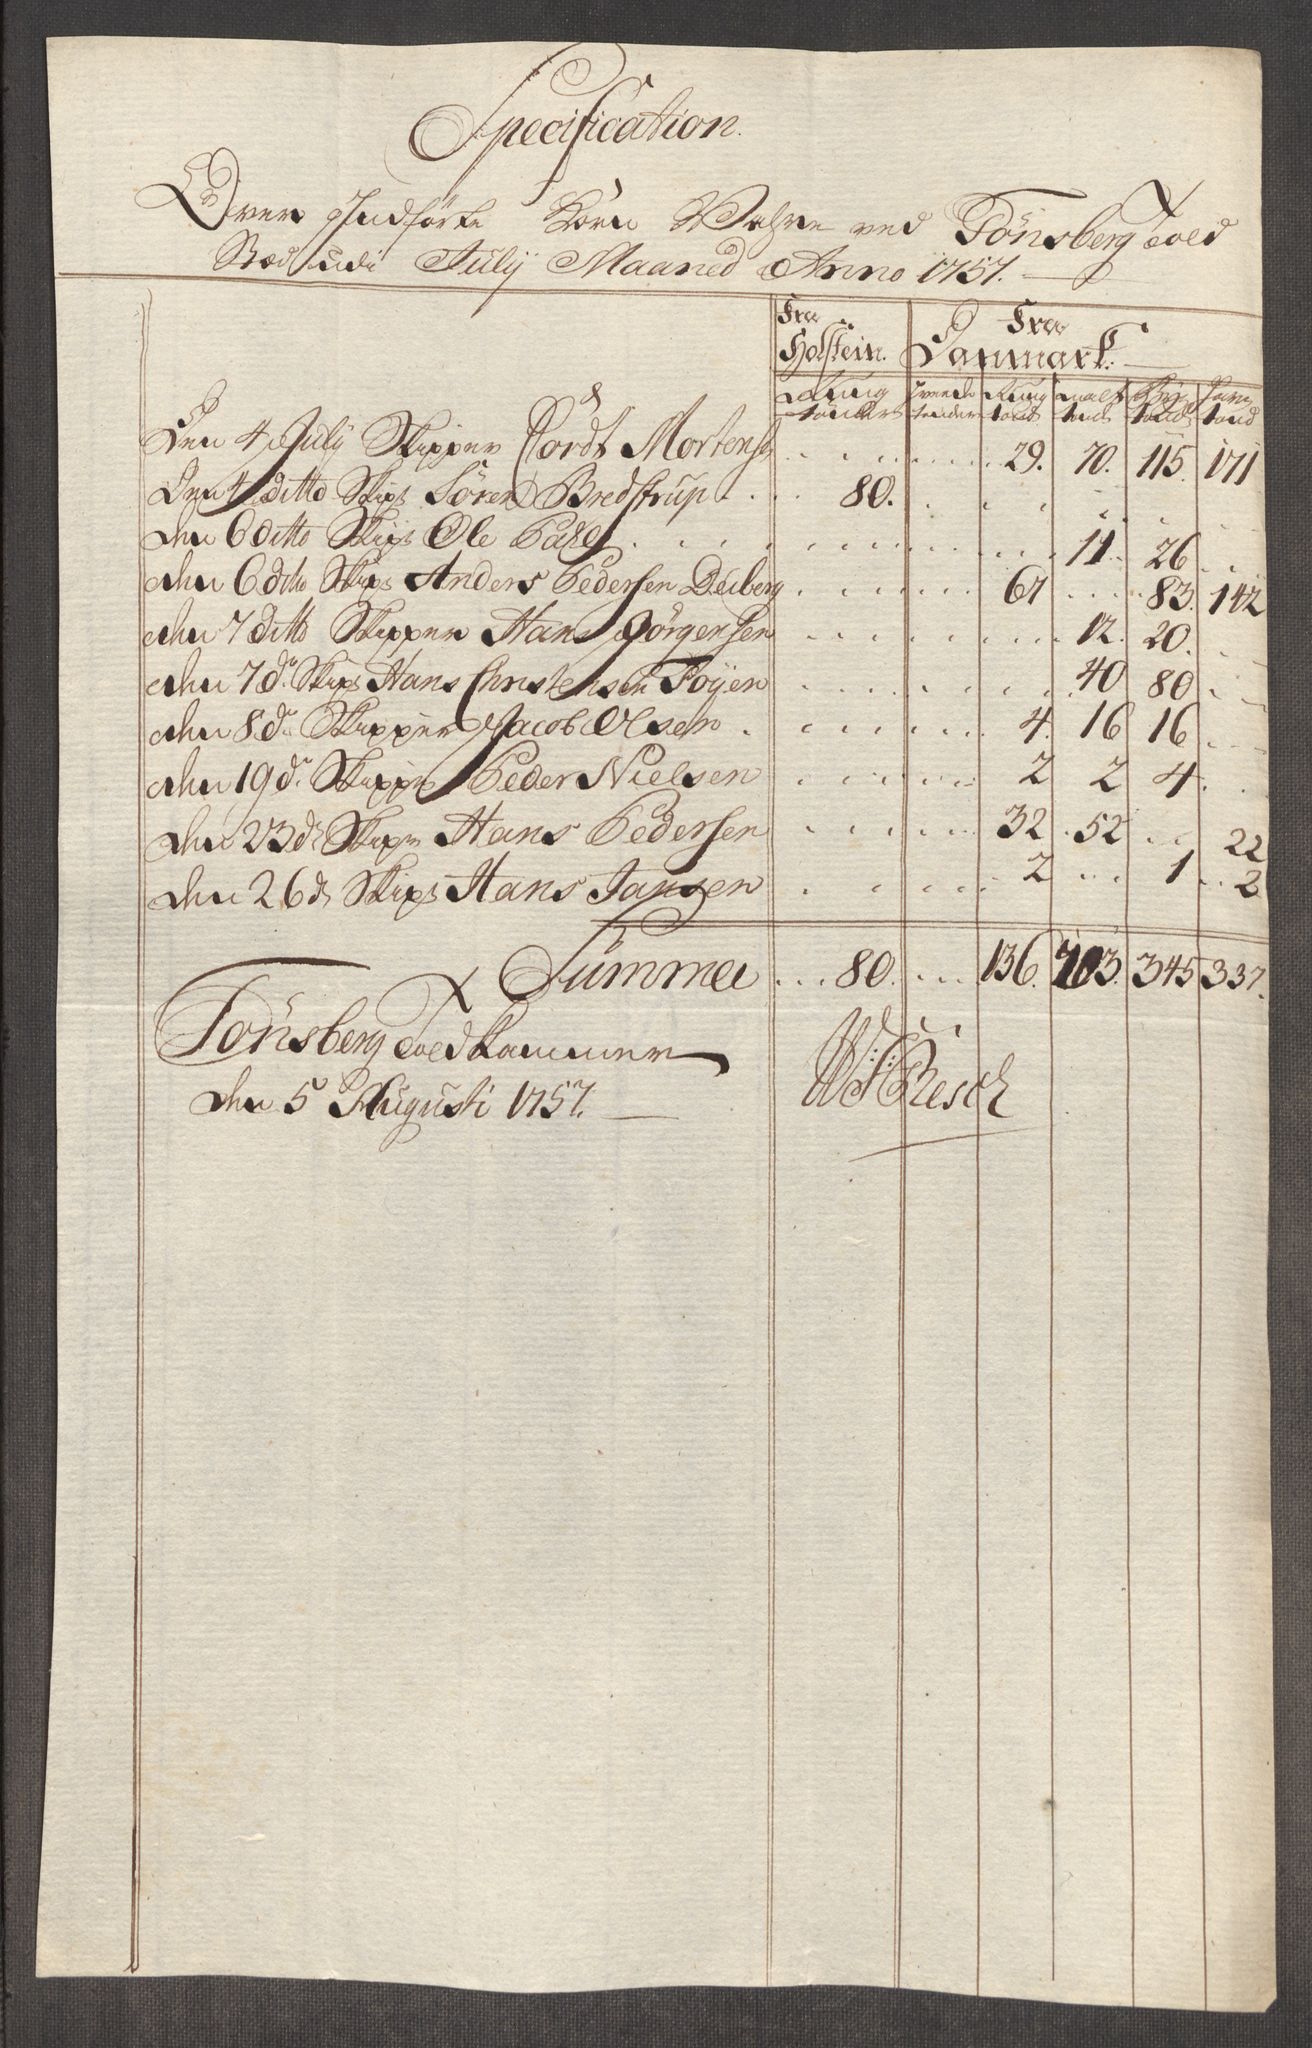 Specification.
Over Indførte Korn Wahre ved Tönsberg Told
Stæd udi Julij Maaned Anno 1757.
Fra Holstein. Fra Danmark.
Rung tønder Hvede tønder Rung tønd Malt tønd Byg tønd Havre tønd
Den 4 July Skipper Cordt Mortens 29. 70. 115. 171
Den 4 ditto Skipr Sören Bredstrup 80.
den 6 ditto Skipr Ole 11. 26
den 6 ditto Skipr Anders Pedersen Deiberg 67 83. 142
den 7 ditto Skipper Hans Jörgensen 12. 20.
den 7 do Skipr Hans Christensen Foyen 40 80
den 8 do Skipper Jacob Olsen 4. 16 16
den 19 do Skipper Peder Nielsen 2 2 4
den 23 do Skipr Hans Pedersen 32 52 22
den 26 do Skipr Hans Jansen 2 1 2
Summa 80. 136. 203. 345 337.
Tönsberg Told Kammer
den 5 Augusti 1757.
W: F: Resch